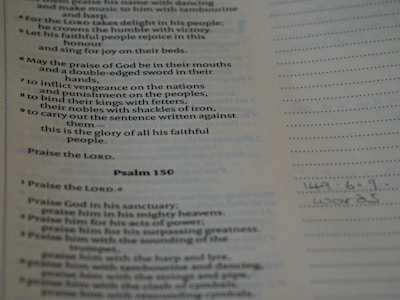 them praise his name with dancing
and make music to him with tambourine
and harp.
4 For the LORD takes delight in his people;
he crowns the humble with victory.
5 Let his faithful people rejoice in this
honour
and sing for joy on their beds.
6 May the praise of God be in their mouths
and a double-edged sword in their
hands,
7 to inflict vengeance on the nations
and punishment on the peoples,
8 to bind their kings with fetters,
their nobles with shackles of iron,
9 to carry out the sentence written against
them –
this is the glory of all his faithful
people.
Praise the LORD.
Psalm 150
1 Praise the LORD.
Praise God in his sanctuary;
praise him in his mighty heavens.
2 Praise him for his acts of power;
praise him for his surpassing greatness.
3 Praise him with the sounding of the
trumpet,
praise him with the harp and lyre,
4 praise him with tambourine and dancing,
praise him with the strings and pipe,
5 praise him with the clash of cymbals,
praise him with resounding cymbals.
149 - 6-9 -
words